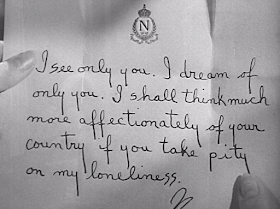 N
I see only you. I dream of
only you. I shall think much
more affectionately of your
country if you take pity
on my loneliness.
N